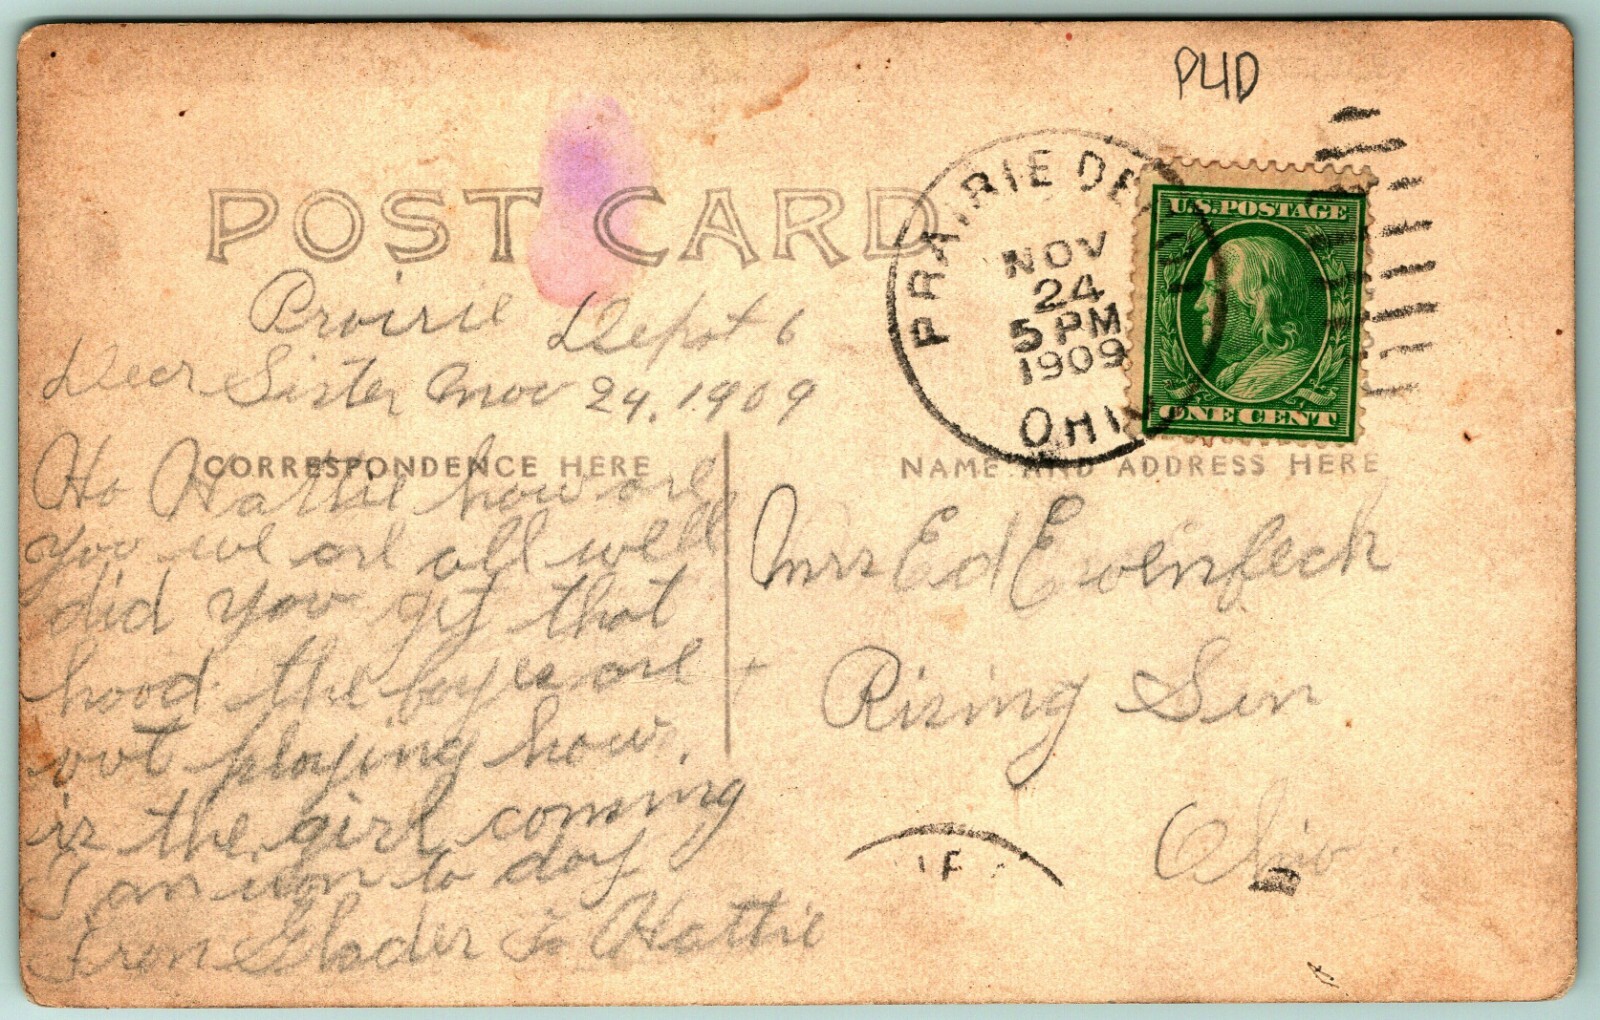 P4D
POST CARD
PRAIRIE DEPOT
NOV
24
5 PM
1909
OHIO
U.S. POSTAGE
ONE CENT
Prairie Depot 6
Dear Sister Nov 24, 1909
CORRESPONDENCE HERE
NAME AND ADDRESS HERE
Ho Hattie how are
you we are all well
did you get that
hood the boyes are +
out playing how
is the girl coming
I am to day
From Glader to Hattie
Mrs Ed
Rising Sun
Ohio